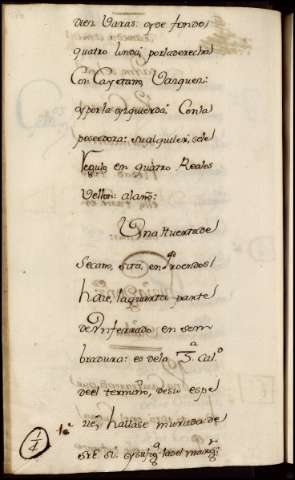 diez Varas: y de fondo
quatro linda; por la derecha
Con Cayetano Vazquez:
y por la ysquierda: Con la
poseedora: su alquiler, se le
Regulo en quatro Reales
Vellon: al año:
Una Huerta de
Secano, sita, en
haze, la quarta parte
de Un ferrado en sem
bradura: es de la 3.ª Cal.º
de el termino, de su espe
zie, hallase murada de
1/4